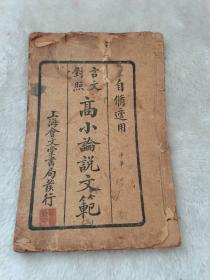 自修適用
言文
對照
高小論說文範
上海會文堂書局發行